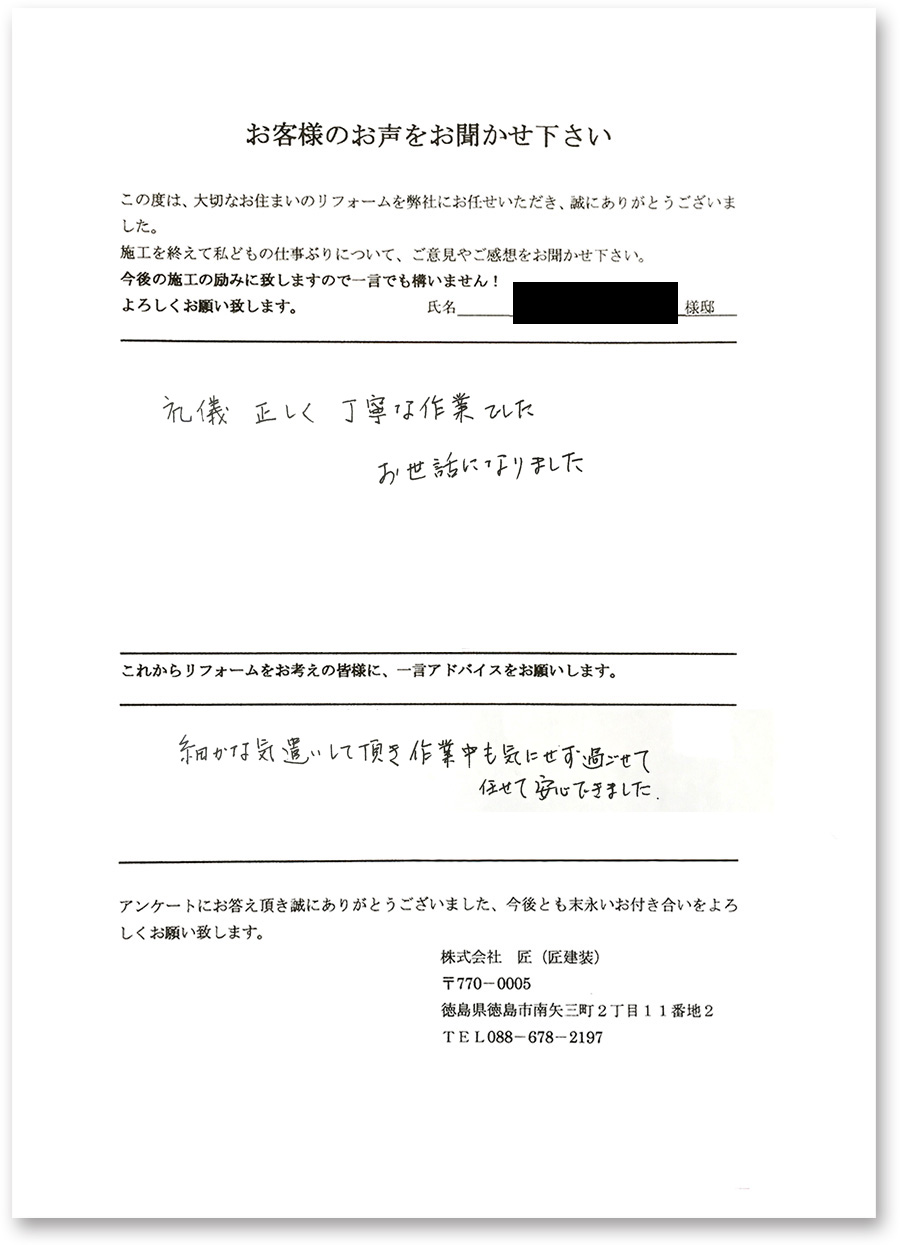 お客様のお声をお聞かせ下さい
この度は、大切なお住まいのリフォームを弊社にお任せいただき、誠にありがとうございま
した。
施工を終えて私どもの仕事ぶりについて、ご意見やご感想をお聞かせ下さい。
今後の施工の励みに致しますので一言でも構いません！
よろしくお願い致します。 氏名 様邸
礼儀 正しく 丁寧な作業でした
お世話になりました
これからリフォームをお考えの皆様に、一言アドバイスをお願いします。
細かな気遣いして頂き作業中も気にせず過ごせて
任せて安心できました.
アンケートにお答え頂き誠にありがとうございました、今後とも末永いお付き合いをよろ
しくお願い致します。
株式会社 匠（匠建装）
〒770－0005
徳島県徳島市南矢三町２丁目１１番地２
ＴＥＬ088－678－2197